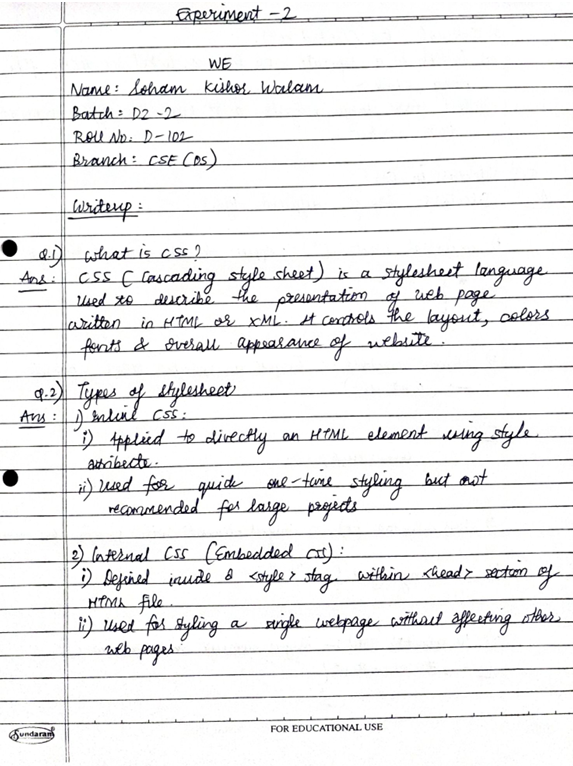 Experiment - 2
WE
Name: Soham Kishor Walam
Batch: D2 -2
Roll No: D-102
Branch: CSE (DS)
Writeup:
Q.1) What is CSS?
Ans: CSS ( Cascading style sheet) is a stylesheet language
used to describe the presentation of web page
written in HTML or XML. It controls the layout, colors
fonts & overall appearance of website.
Q.2) Types of stylesheet
Ans: 1) Inline CSS:
i) Applied to directly an HTML element using style
attribute.
ii) Used for quick one-time styling but not
recommended for large projects
2) Internal CSS (Embedded CSS):
i) Defined inside a <style> stag within <head> section of
HTML file.
ii) Used for styling a single webpage without affecting other
web pages
Sundaram
FOR EDUCATIONAL USE